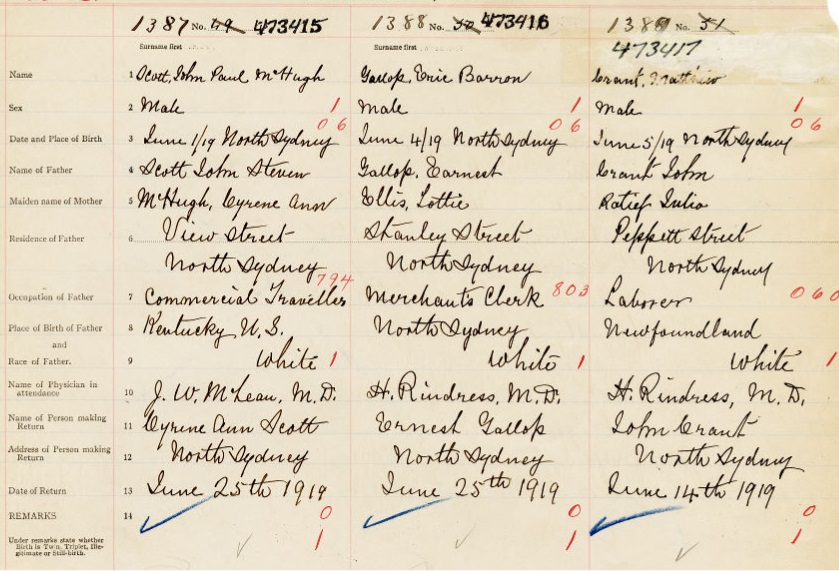 1387 No. 49 473415
1388 No. 50 473416
1389 No. 51
473417
Surname first
Surname first
Name 1 Scott, John Paul McHugh
Gallop, Eric Barron
Grant,
Sex 2 Male 1
Male 1
Male 1
06
06
06
Date and Place of Birth 3 June 1/19 North Sydney
June 4/19 North Sydney
June 5/19 North Sydney
Name of Father 4 Scott John Steven
Gallop, Earnest
Grant John
Maiden name of Mother 5 McHugh, Cyrene Ann
Ellis, Lottie
Ratief Julia
Residence of Father 6 View Street
Stanley Street
Peppett Street
North Sydney
North Sydney
North Sydney
794
Occupation of Father 7 Commercial Traveller
Merchants Clerk 803
Laborer 060
Place of Birth of Father 8 Kentucky U.S.
North Sydney
Newfoundland
and
Race of Father. 9 White 1
White 1
White 1
Name of Physician in
attendance 10 J. W. McLean, M.D.
H. Rindress, M.D.
H. Rindress, M.D.
Name of Person making
Return 11 Cyrene Ann Scott
Ernest Gallop
John Grant
Address of Person making
Return 12 North Sydney
North Sydney
North Sydney
Date of Return 13 June 25th 1919
June 25th 1919
June 14th 1919
REMARKS 14 0
0
0
Under remarks state whether
Birth is Twin, Triplet, Ille-
gitimate or Still-birth.
1
1
1